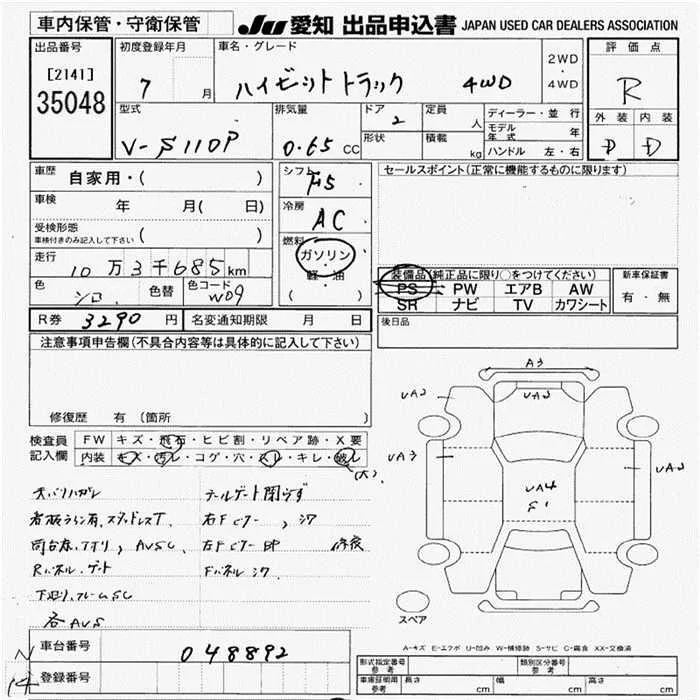 車内保管・守衛保管
JU 愛知 出品申込書 JAPAN USED CAR DEALERS ASSOCIATION
出品番号
[2141]
35048
初度登録年月
7 月
車名・グレード
ハイゼットトラック 4WD
2WD
・
4WD
評価点
R
外装 内装
D D
型式
V-S110P
排気量
0.65 CC
ドア
2
形状
定員
人
積載
kg
ディーラー・並行
モデル年式 年
ハンドル 左・右
車歴
自家用・( )
車検
年 月( 日)
受検形態
車検付きのみ記入して下さい ( )
走行
10万3千685km
色
シロ
色替
色コード
W09
シフト
F5
冷房
AC
燃料
ガソリン
軽・油
( )
セールスポイント(正常に機能するものに限ります)
装備品(純正品に限り○をつけてください)
PS PW エアB AW
SR ナビ TV カワシート
新車保証書
有・無
後日品
R券 3290 円
名変通知期限 月 日
注意事項申告欄(不具合内容等は具体的に記入して下さい)
修復歴 有(箇所 )
検査員
記入欄
FW キズ・飛石・ヒビ割・リペア跡・X要
内装 キズ・汚レ・コゲ・穴・スレ・キレ・破レ
(大)
テールゲート閉ラズ
看板ラシ有、スタッドレスT
AVSC
Rパネル、ゲート
Fパネルシワ
下廻り、フレームSC
各AVS
A3
UA2
UA3
UA3
UA4
S1
スペア
A-キズ E-エクボ U-凹み W-補修跡 S-サビ C-腐食 XX-交換済
車台番号
048892
登録番号
N
14
形式指定番号
参考
類別区分番号
参考
車庫証明用
参考
長さ cm
幅 cm
高さ cm